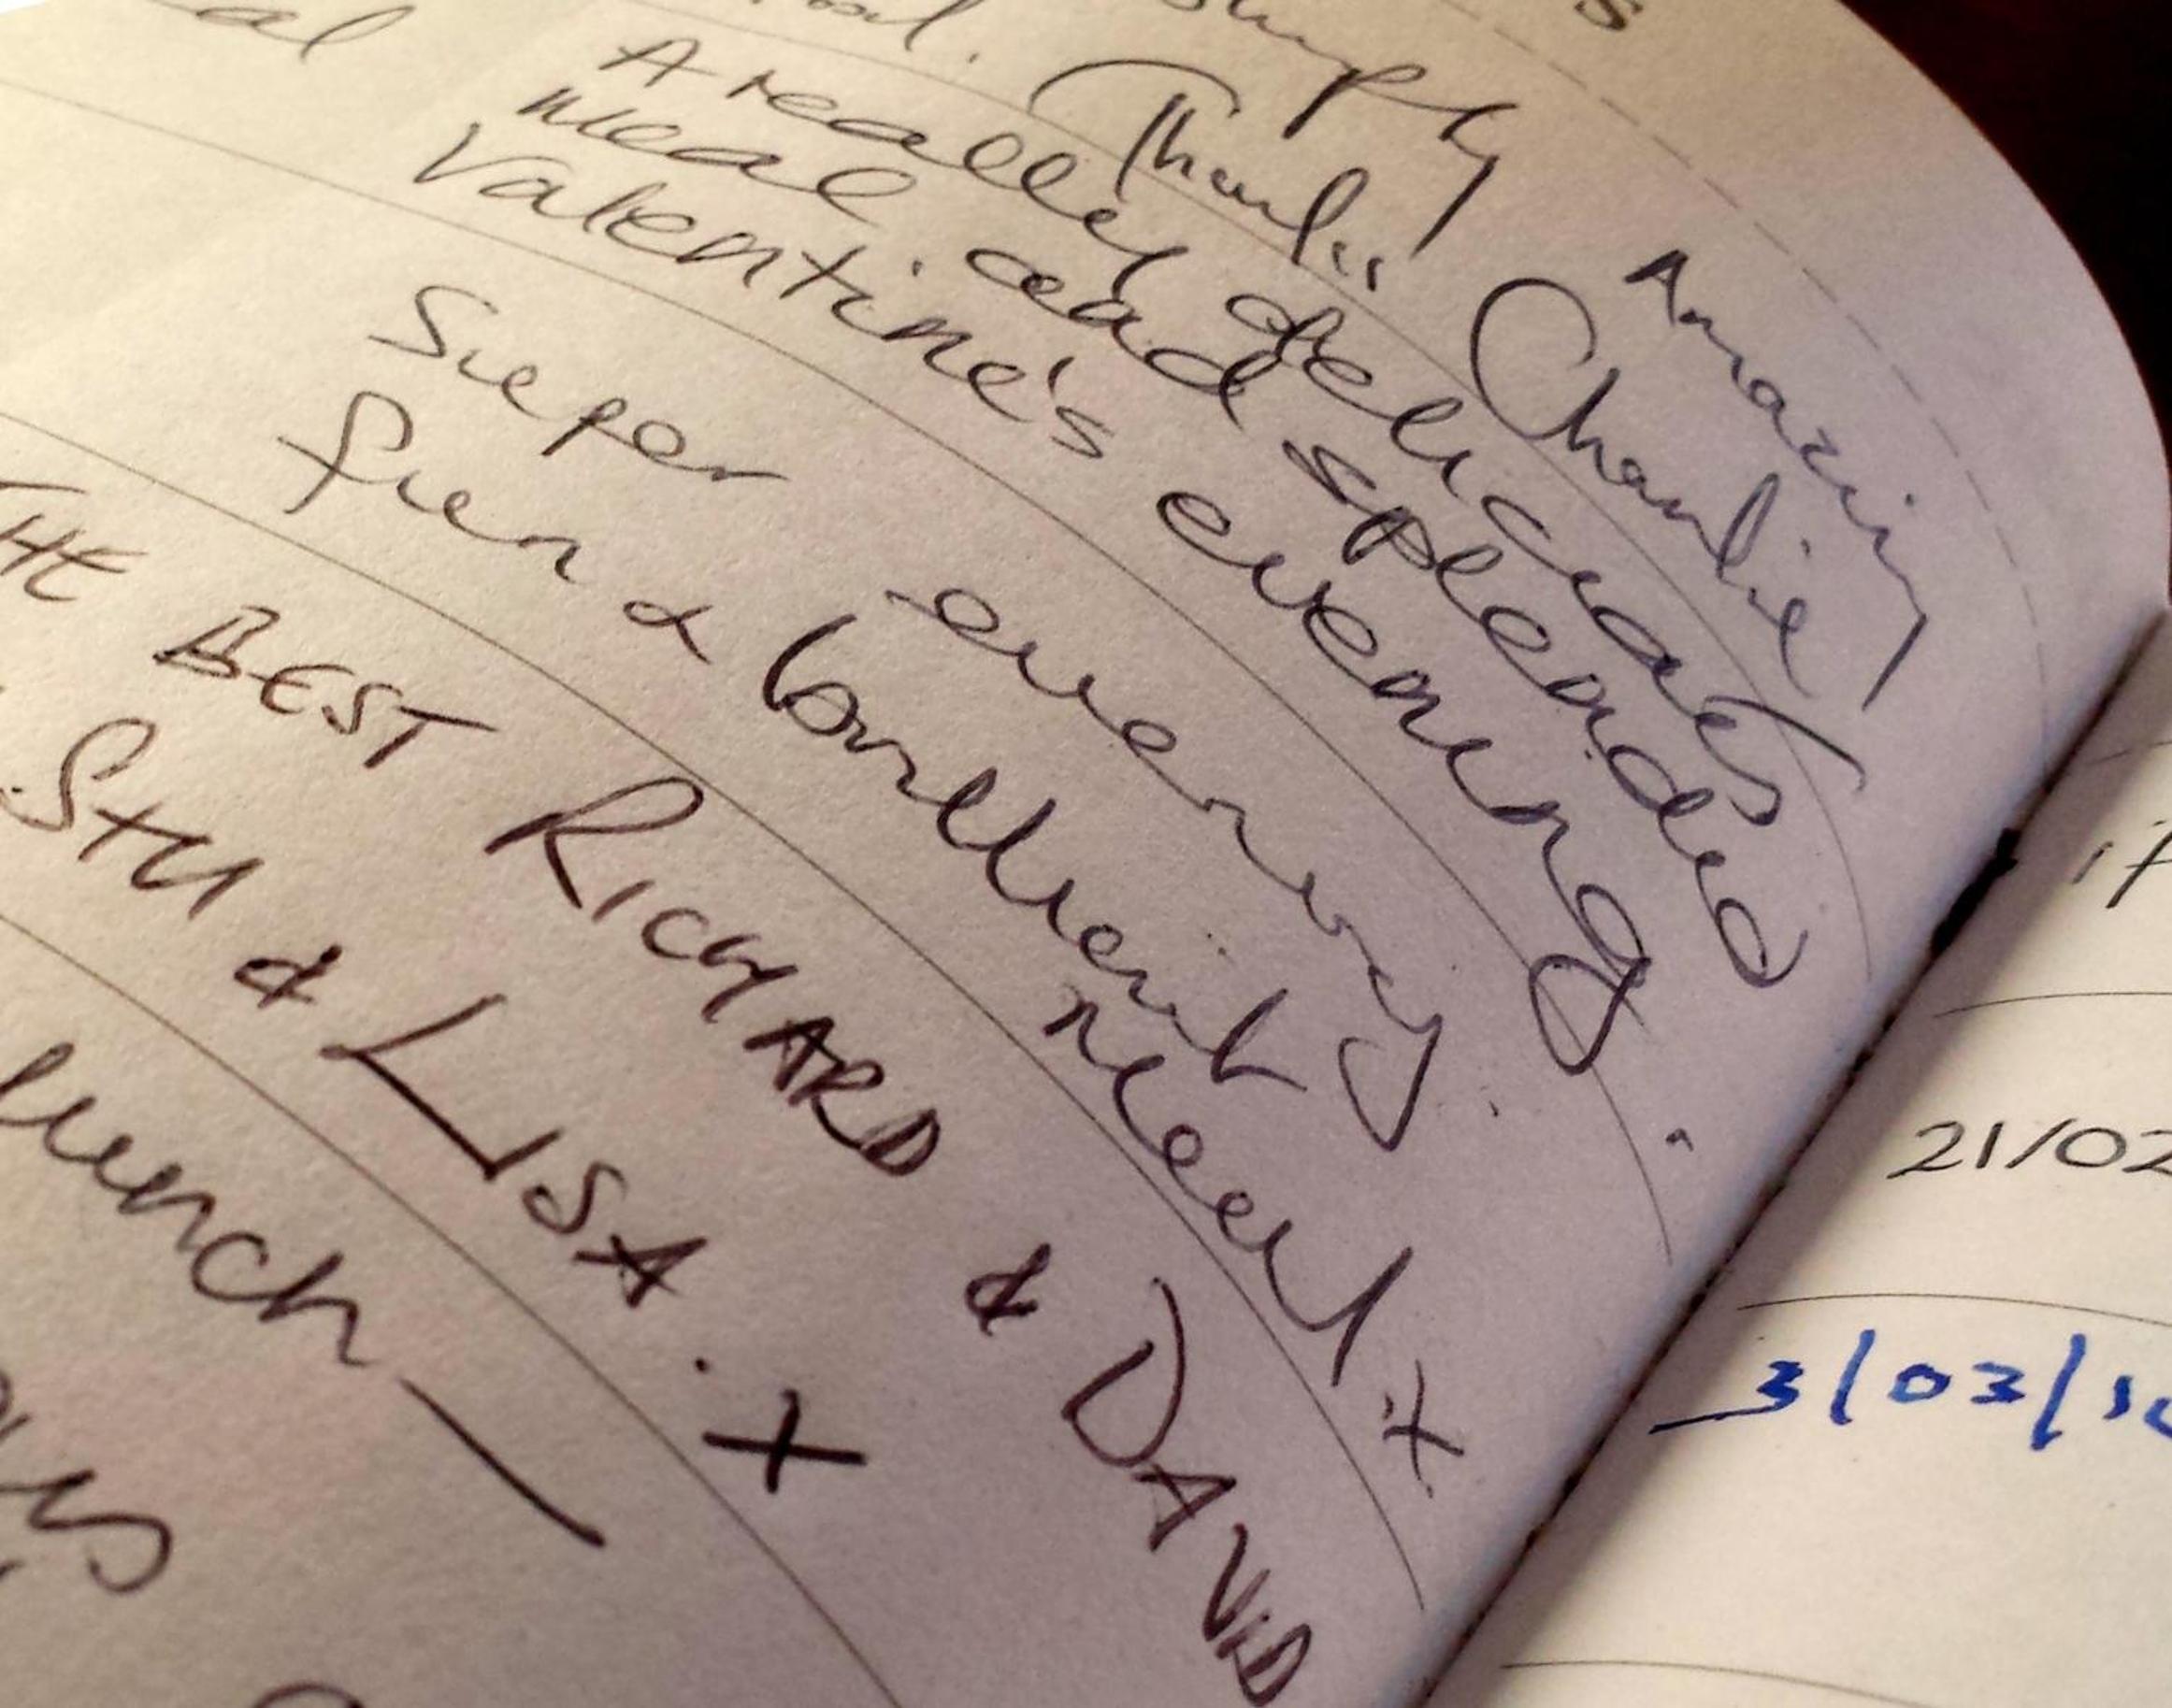 Simply Amazing
Thanks Charlie!
A really delicious
meal and splendid
Valentine's evening.
Super evening
fun & brilliant meal x
THE BEST RICHARD & DAVID
STU & LISA. X
lunch
21/02
3/03/1